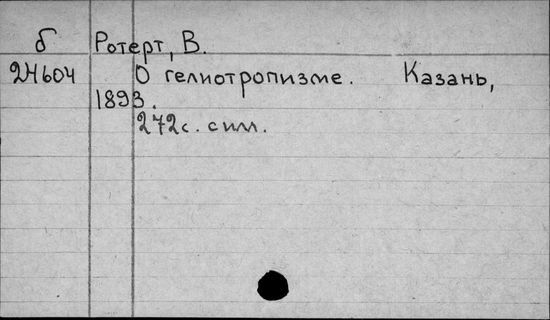 б Ротерт, В.
24604 О гелиотропизме. Казань,
1893.
272с. с илл.